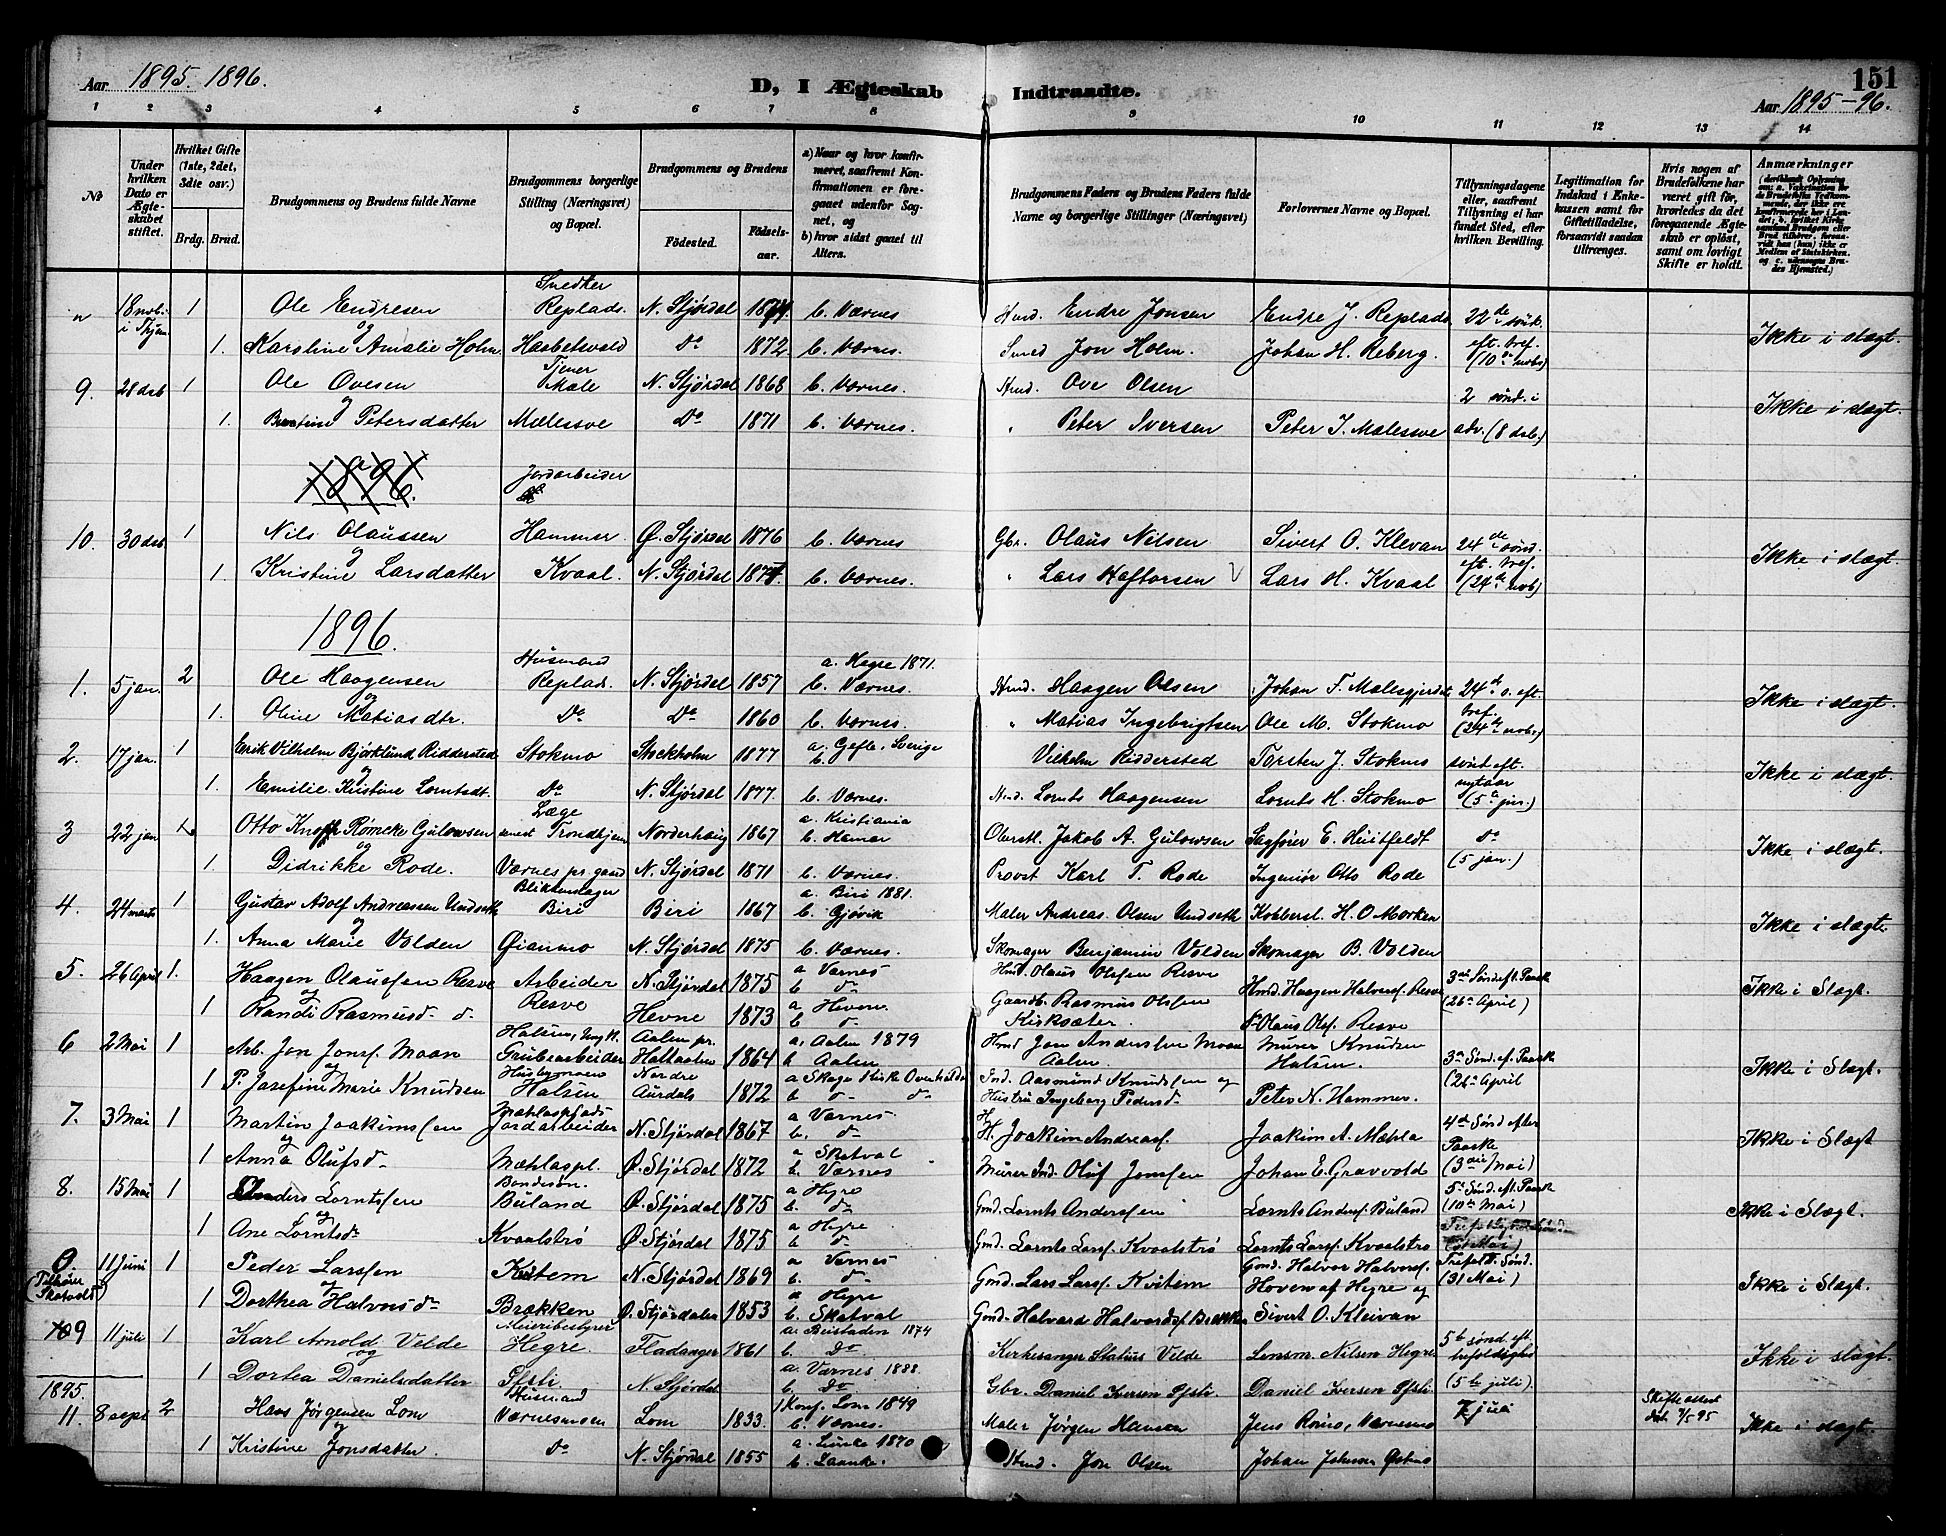 151
Aar 1895. 1896.
D, I Ægteskab Indtraadte.
Aar 1895-96.
1 2 3 4 5 6 7 8 9 10 11 12 13 14
No
Under hvilken Dato er Ægteskabet stiftet.
Hvilket Gifte (1ste, 2det, 3die osv.)
Brdg. Brud.
Brudgommens og Brudens fulde Navne
Brudgommens borgerlige Stilling (Næringsvei) og Bopæl.
Brudgommens og Brudens
Födested. Födsels-aar.
a) Naar og hvor konfirmeret, saafremt Konfirmationen er foregaaet udenfor Sognet, og
b) hvor sidst gaaet til Alters.
Brudgommens Faders og Brudens Faders fulde Navne og borgerlige Stillinger (Næringsvei)
Forlovernes Navne og Bopæl.
Tillysningsdagene eller, saafremt Tillysning ei har fundet Sted, efter hvilken Bevilling.
Legitimation for Indskud i Enkekassen samt for Giftetilladelse, forsaavidt saadan tiltrænges.
Hvis nogen af Brudefolkene har været gift för, hvorledes da det foregaaende Ægteskab er oplöst, samt om lovligt Skifte er holdt.
Anmærkninger
18 nvb. 1 Ole Endresen Snedker Replads. N. Stjørdal 1874 b. Værnes Hmd. Endre Jonsen Endre J. Replads 22de sönt.
og 1. Karoline Amalie Holm Haabetsvold Do 1872. b. Værnes. Smed Jon Holm. Johan H. Reberg. eft. tref. (10de nvb) Ikke i slægt.
9. 28 dsb 1 Ole Ovesen Tjener Mæle N. Stjørdal 1868 b. Værnes. Hmd. Ove Olsen 2 sönd. i
og 1. Petersdatter Mælessve Do 1871 b. Værnes. " Peter Iversen Peter I. Mælessve adv. (8 dsb.) Ikke i slægt.
1896.
10. 30 dsb 1 Nils Olaussen Jordarbeider Hammer Ø. Stjørdal 1876 b. Værnes Gbr. Olaus Nilsen Sivert O. Klevan 24de sönd.
og 1. Kristine Larsdatter Kvaal. N. Stjørdal b. Værnes. " Lars Haftorsen Lars H. Kvaal eft. tref. (24de nvb) Ikke i slægt.
1896.
1. 5 jan. 2 Ole Haagensen Husmand Replads. N. Stjørdal 1857 a. Hegre 1871. b. Værnes. Hmd. Haagen Olsen Johan F. Mælesgjerdet 24de s. eft.
og 1. Oline Matiasdtr. Do Do 1860 b. Værnes. " Matias Ingebrigtsen Ole M. Stokmo tref. (24de nvb.) Ikke i slægt.
2. 17 jan. 1 Erik Vilhelm Björklund Riddersted Stokmo Stockholm 1877 a. Gefle, Sverige b. Vilhelm Riddersted Torsten J. Stokmo sönt. eft.
og 1. Emilie Kristine Lorntsdt. Do N. Stjørdal 1877. b. Værnes. Hmd. Lornts Haagensen Lornts H. Stokmo nytaar (5te jan.) Ikke i slægt.
3 22 jan 1. Otto Knoph Rømcke Gulowsen Læge Trondhjem Norderhaug 1867 a. Kristiania b. Hamar Oberstl. Jakob A. Gulowsen Sagfører E. Huitfeldt Do
og 1. Didrikke Rode. Værnes pr.gaard N. Stjørdal 1871 b. Værnes. Provst Karl T. Rode Ingeniør Otto Rode (5 jan.) Ikke i slægt.
4. 24 marts 1 Gustav Adolf Andreassen Undseth Blikkenslager Biri Biri 1867 a. Biri 1881. b. Gjøvik Maler Andreas Olsen Undseth Kobbersl. H. O Morken
og 1. Anna Marie Volden Øianmo N. Stjørdal 1875 b. Værnes. Skomager Benjamin Volden Skomager B. Volden Ikke i slægt.
5. 26 April 1. Haagen Olaussen Resve Arbeider N. Stjørdal 1875 a Værnes b do Hmd. Olaus Olssen Resve Hmd. Haagen Halvors. Resve 3die Sönd eft. Paaske
og 1 Randi Rasmusd. Resve Hevne 1873 a Hevne. b do Gaardb. Rasmus Olsen Kirksæter. Olaus Ols. Resve (26de April) Ikke i Slægt.
6 2 Mai 1 Arb. Jon Jons. Moan Halsen, Grubearbeider Aalen pr. Holtaalen 1864 a. Aalen 1879 b Aalen Hmd Jon Anderssen Moan Aalen Murer Knudsen Halsen. 3die Sönd. eft. Paaske
og 1 P. Josefine Marie Knudsen Halsen Nordre Aurdals 1872 a Skage Kirke Overhalden b do do Ind. Aasmund Knudsen og Hustru Ingeborg Pedersd. Peter N. Hammer. (26de April Ikke i Slægt.
7. 3 Mai 1 Martin Joakimssen Mæhlasplads Jordarbeider N. Stjørdal 1867 a Værnes b. do H. Joakim Andreass. Joakim A. Mæhla 4de Sönd efter Paaske
og 1 Anna Olufsd. Mæhlaspl. Ø. Stjørdal 1872 a Skatval b. Værnes Murer Ind. Oluf Jonssen Johan E. Gravvold (3die Mai) Ikke i Slægt
8. 15 Mai 1 Anders Lorntssen Bondesøn. Buland Ø. Stjørdal 1875 a Hegre b. do Gmd. Lornts Anderssen Lornts Anders. Buland 5te Sönd. eft. Paaske (10de Mai)
og 1 Ane Lorntsd. Kvaalstrø Ø. Stjørdal 1875 a Hegre b. do Gmd. Lornts Lars. Kvaalstrø Lornts Lars. Kvaalstrø Ikke i Slægt.
0. 11 Juni 1 Peder Larssen Kvitem N. Stjørdal 1869 a Værnes b. do Gmd. Lars Lars. Kvitem Gmd. Halvor Halvors. Hoven af Hegre og Trefold. Sönd. (31 Mai)
og 1 Dorthea Halvorsd. Brækken Ø. Stjørdalen 1853 a Hegre b. Skatval Gmd. Halvard Halvards. Brækken Sivert O. Kleivan Ikke i Slægt.
9 11 juli 1 Karl Arnold Velde Meieribestyrer Hegre. Fladanger 1861 a. Beistaden 1874 b. Do Kirkesanger Statius Velde Lensm. Nilsen Hegre 5te sönd. eft. trefoldighed
og 1 Dortea Danielsdatter N. Stjørdal a. Værnes 1888 b. Do Gbr. Daniel Iversen Daniel Iversen (5te juli). Ikke i slægt.
1895.
11. 8 sept 2 Hans Jørgensen Lom Husmand Værnesmoen Lom 1833. Konf. Lom 1849 b. Værnes. Maler Jørgen Hansen Jens Romo, Værnesmo 7 juli Skifteattest dat. 7/5 95
og 1 Kristine Jonsdatter. Do N. Stjørdal 1855 a. 1870 b. Laanke. Hmd. Jon Olsen Johan Ikke i slægt.